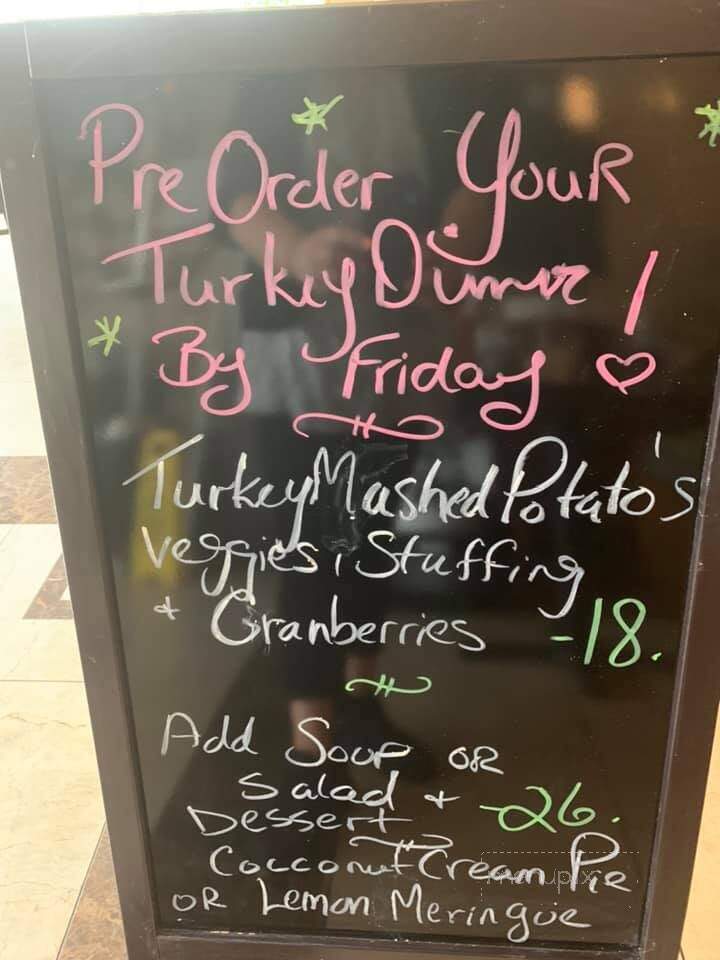 Pre Order Your
Turkey Dinner!
By Friday
Turkey Mashed Potato's
veggies, Stuffing
+ Cranberries -18.
Add Soup OR
Salad + -26.
Dessert
Cocconut Cream Pie
OR Lemon Meringue
menupix